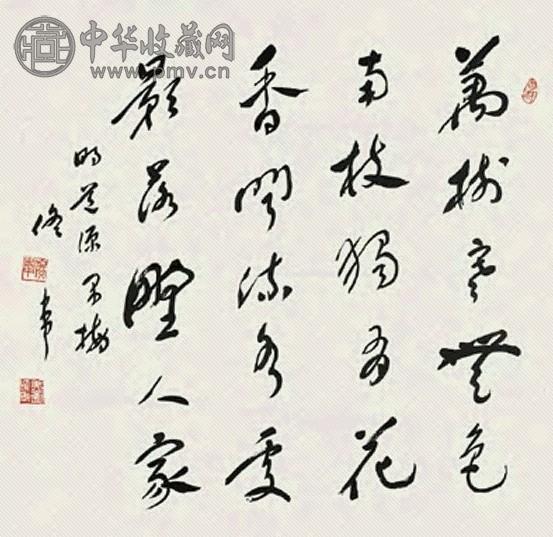 萬樹寒無色
南枝獨有花
香聞流水處
影落野人家
明道源早梅
修韋
中华收藏网
www.pmv.cn